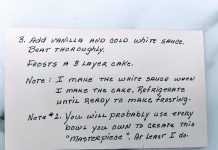 3. Add vanilla and cold white sauce.
Beat thoroughly.
Frosts a 3 layer cake.
Note: I make the white sauce when
I make the cake. Refrigerate
until ready to make frosting.
Note #2. You will probably use every
bowl you own to create this
"masterpiece". At least I do.